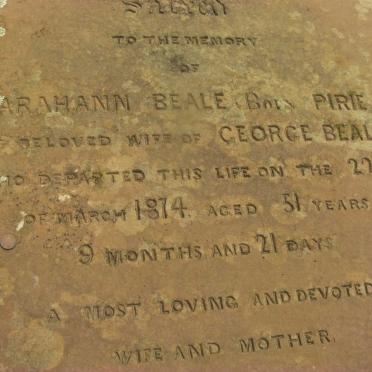 Sacred
TO THE MEMORY
OF
ARAHANN BEALE (Born PIRIE
BELOVED WIFE OF GEORGE BEAL
HO DEPARTED THIS LIFE ON THE 22
OF MARCH 1874. AGED 51 YEARS
9 MONTHS AND 21 DAYS
A MOST LOVING AND DEVOTED
WIFE AND MOTHER.